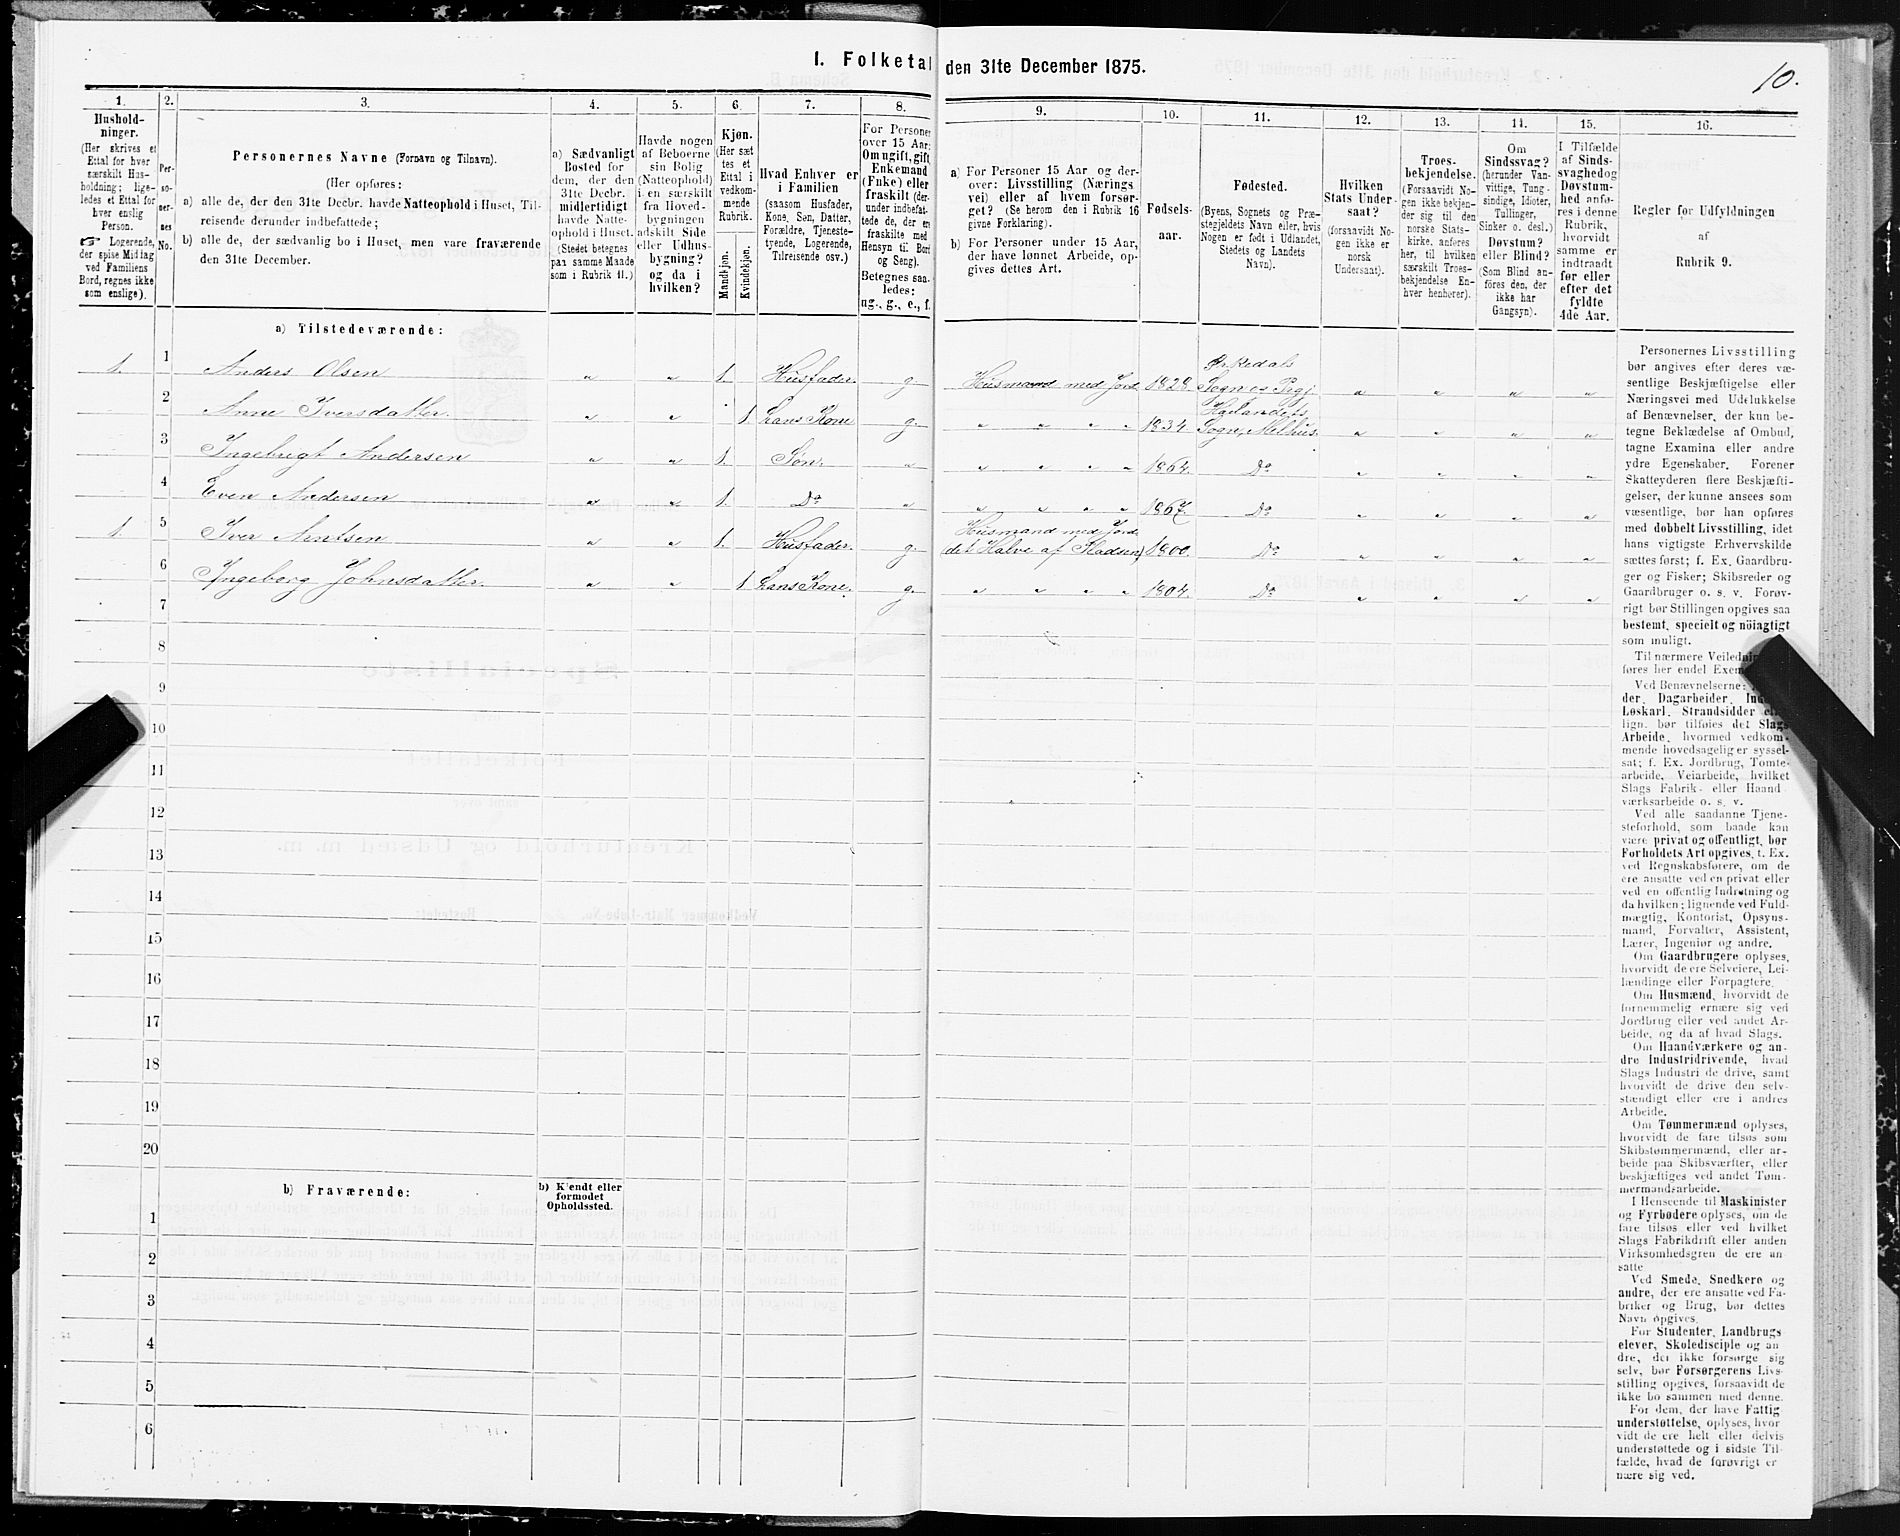 I. Folketal den 31te December 1875.
10.
1.
Hushold-
ninger.
(Her skrives et
Ettal for hver
særskilt Hus-
holdning; lige-
ledes et Ettal for
hver enslig
Person.
☞ Logerende,
der spise Middag
ved Familiens
Bord, regnes ikke
som enslige).
2.
Per-
so-
ner-
nes
No.
3.
Personernes Navne (Fornavn og Tilnavn).
(Her opføres:
a) alle de, der den 31te Decbr. havde Natteophold i Huset, Til-
reisende derunder indbefattede;
b) alle de, der sædvanlig bo i Huset, men vare fraværende
den 31te December.
4.
a) Sædvanligt
Bosted for
dem, der den
31te Decbr.
midlertidigt
havde Natte-
ophold i Huset.
(Stedet betegnes
paa samme Maade
som i Rubrik 11.)
5.
Havde nogen
af Beboerne
sin Bolig
(Natteophold)
i en særskilt
fra Hoved-
bygningen
adskilt Side
eller Udhus-
bygning?
og da i
hvilken?
6.
Kjøn.
(Her sæt-
tes et
Ettal i
vedkom-
mende
Rubrik.
Mandkjøn.
Kvindekjøn.
7.
Hvad Enhver er
i Familien
(saasom Husfader,
Kone, Søn, Datter,
Forældre, Tjeneste-
tyende, Logerende,
Tilreisende osv.)
8.
For Personer
over 15 Aar:
Om ugift, gift,
Enkemand
(Enke) eller
fraskilt (der-
under indbefat-
tede de, der er
fraskilte med
Hensyn til Bord
og Seng).
Betegnes saa-
ledes:
ug., g., e., f.
9.
a) For Personer 15 Aar og der-
over: Livsstilling (Nærings-
vei) eller af hvem forsør-
get? (Se herom den i Rubrik 16
givne Forklaring).
b) For Personer under 15 Aar,
der have lønnet Arbeide, op-
gives dettes Art.
10.
Fødsels-
aar.
11.
Fødested.
(Byens, Sognets og Præ-
stegjeldets Navn eller, hvis
Nogen er født i Udlandet,
Stedets og Landets
Navn).
12.
Hvilken
Stats Under-
saat?
(forsaavidt No-
gen ikke er
norsk
Undersaat).
13.
Troes-
bekjendelse.
(Forsaavidt No-
gen ikke bekjen-
der sig til den
norske Stats-
kirke, anføres
her, til hvilken
særskilt Troes-
bekjendelse En-
hver henhører).
14.
Om
Sindssvag?
(herunder Van-
vittige, Tung-
sindige, Idioter,
Tullinger,
Sinker o. desl.)
Døvstum?
eller Blind?
(Som Blind an-
føres den, der
ikke har
Gangsyn).
15.
I Tilfælde
af Sinds-
svaghed og
Døvstum-
hed anfø-
res i denne
Rubrik,
hvorvidt
samme er
indtraadt
før eller
efter det
fyldte
4de Aar.
16.
Regler for Udfyldningen
af
Rubrik 9.
a) Tilstedeværende:
1. 1 Anders Olsen „ „ 1. Husfader. g. Husmand med Jord 1828. Ørkedals Sognes Prgj. „ „ „ „
2 Anne Iversdatter. „ „ 1. hans Kone g. „ „ „ „ 1834. Høilandets Sogn, Melhus. „ „ „ „
3 Ingebrigt Andersen „ „ 1. Søn. „ „ „ „ „ 1864. Do „ „ „ „
4 Even Andersen „ „ 1. Do „ „ „ „ „ 1867. Do „ „ „ „
1. 5 Iver Arntsen „ „ 1. Husfader. g. Husmand med Jord (det Halve af Pladsen) 1800. Do „ „ „ „
6 Ingeborg Johnsdatter. „ „ 1. hans Kone. g. „ „ „ „ 1804. Do „ „ „ „
7
8
9
10
11
12
13
14
15
16
17
18
19
20
b) Fraværende:
b) Kjendt eller
formodet
Opholdssted.
1
2
3
4
5
6
Personernes Livsstilling
bør angives efter deres væ-
sentlige Beskjæftigelse eller
Næringsvei med Udelukkelse
af Benævnelser, der kun be-
tegne Beklædelse af Ombud,
tagne Examina eller andre
ydre Egenskaber. Forener
Skatteyderen flere Beskjæfti-
gelser, der kunne ansees som
væsentlige, bør han opføres
med dobbelt Livsstilling, idet
hans vigtigste Erhvervskilde
sættes først; f. Ex. Gaardbru-
ger og Fisker; Skibsreder og
Gaardbruger o. s. v. Forøv-
rigt bør Stillingen opgives saa
bestemt, specielt og nöiagtigt
som muligt.
Til nærmere Veiledning
føres her endel Exem
Ved Benævnelserne:
der, Dagarbeider, In
Løskarl, Strandsidder el
lign. bør tilføies det Slags
Arbeide, hvormed vedkom-
mende hovedsagelig er syssel-
sat; f. Ex. Jordbrug, Tomte-
arbeide, Veiarbeide, hvilket
Slags Fabrik- eller Haand-
værksarbeide o. s. v.
Ved alle saadanne Tjene-
steforhold, som baade kan
være privat og offentligt, bør
Forholdets Art opgives, f. Ex.
ved Regnskabsførere, om de
ere ansatte ved en privat eller
ved en offentlig Indretning og
da hvilken; lignende ved Fuld-
mægtig, Kontorist, Opsyns-
mand, Forvalter, Assistent,
Lærer, Ingeniør og andre.
Om Gaardbrugere oplyses,
hvorvidt de ere Selveiere, Lei-
lændinge eller Forpagtere.
Om Husmænd, hvorvidt de
fornemmelig ernære sig ved
Jordbrug eller ved andet Ar-
beide, og da af hvad Slags.
Om Haandværkere og an-
dre Industridrivende, hvad
Slags Industri de drive, samt
hvorvidt de drive den selv-
stændigt eller ere i andres
Arbeide.
Om Tømmermænd oplyses,
hvorvidt de fare tilsøs som
Skibstømmermænd, eller ar-
beide paa Skibsværfter, eller
beskjæftiges ved andet Tøm-
mermandsarbeide.
I Henseende til Maskinister
og Fyrbødere oplyses, om de
fare tilsøs eller ved hvilket
Slags Fabrikdrift eller anden
Virksomhedsgren de ere an-
satte
Ved Smede, Snedkere og
andre, der ere ansatte ved Fa-
briker og Brug, bør dettes
Navn opgives.
For Studenter, Landbrugs-
elever, Skoledisciple og an-
dre, der ikke forsørge sig
selv, bør Forsørgerens Livs-
stilling opgives, forsaavidt de
ikke bo sammen med denne.
For dem, der have Fattig-
understøttelse, oplyses, hvor-
vidt de ere helt eller delvis
understøttede og i sidste Til-
fælde, hvad de forøvrigt er-
nære sig ved.